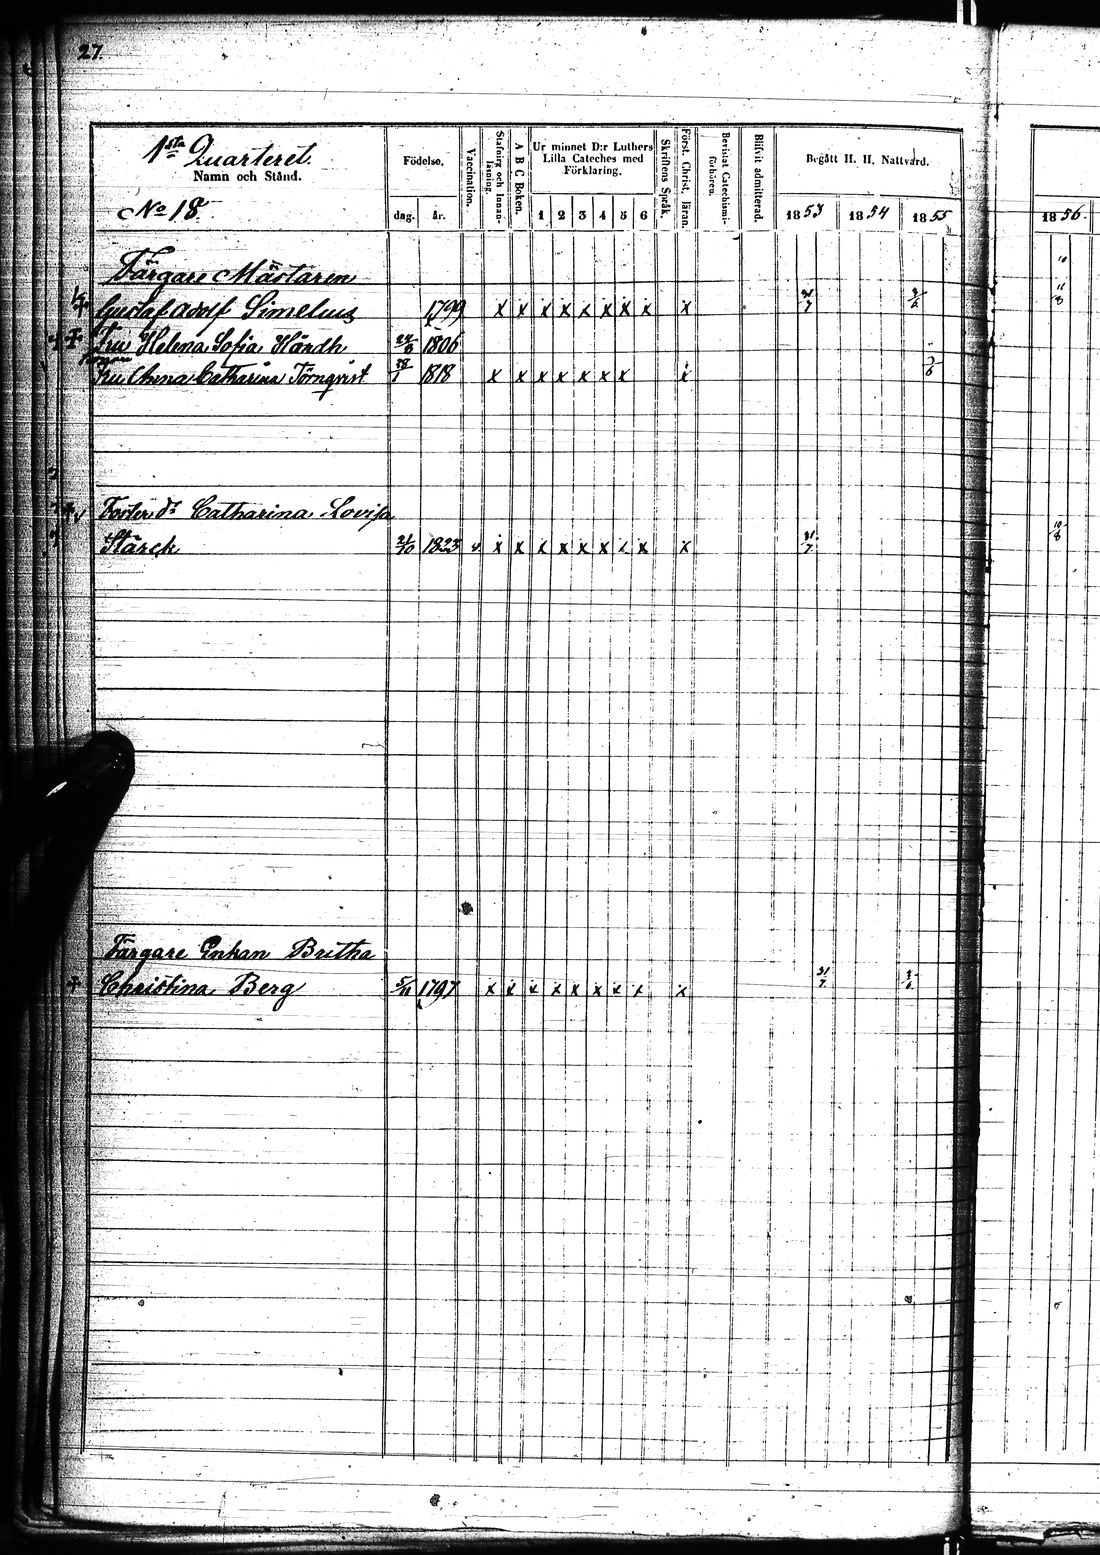 27.
1sta Quarteret.
Namn och Stånd.
No 18.
Födelse.
dag. år.
Vaccination.
Stafning och Innanläsning.
A B C Boken.
Ur minnet D:r Luthers
Lilla Cateches med
Förklaring.
1 2 3 4 5 6
Skriftens Språk.
Först. Christ. läran.
Bevistat Catechismiförhören.
Blifvit admitterad.
Begått H. H. Nattvard.
1853 1854 1855
1856.
Färgare Mästaren
Gustaf Adolf Simelius 1799 x x x x x x x x x 31/7
Fru Helena Sofia Hårdh 1806
Fru Anna Catharina Törnqvist 1818 x x x x x x x x
Foster dr Catharina Lovisa
Stärck 21/10 1823 v x x x x x x x x x 31/7
10/8
Färgare Enkan Britha
Christina Berg 5/11 1797 x x x x x x x x x 31/7